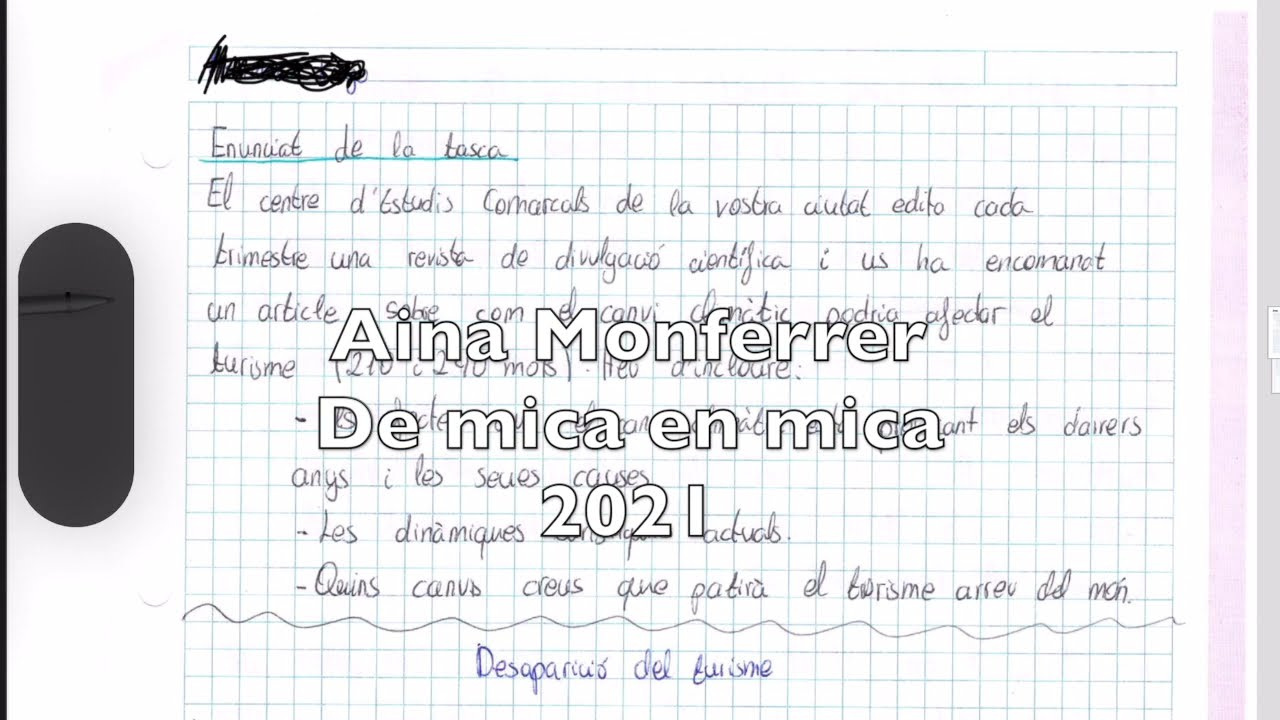 Enunciat de la tasca
El centre d'Estudis Comarcals de la vostra ciutat edita cada
trimestre una revista de divulgació científica i us ha encomanat
un article sobre com el canvi climàtic podria afectar el
turisme (210 i 240 mots). Heu d'incloure:
Aina Monferrer
De mica en mica
2021
- els darrers
anys i les seues causes.
- Les dinàmiques actuals.
- Quins canvis creus que patirà el turisme arreu del món.
Desaparició del turisme